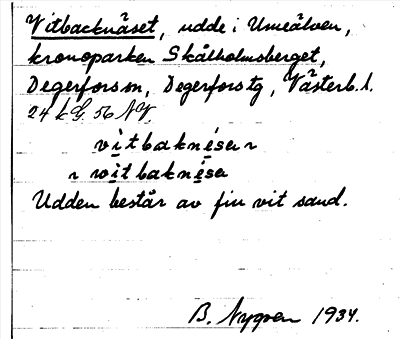 Vitbacknäset, udde i Umeälven,
kronoparken Skålholmsberget,
Degerfors sn, Degerfors tg, Västerb. l.
24 k G. 56 NV.
vitbaknésar
witbaknésa
Udden består av fin vit sand.
B. Nygren 1934.